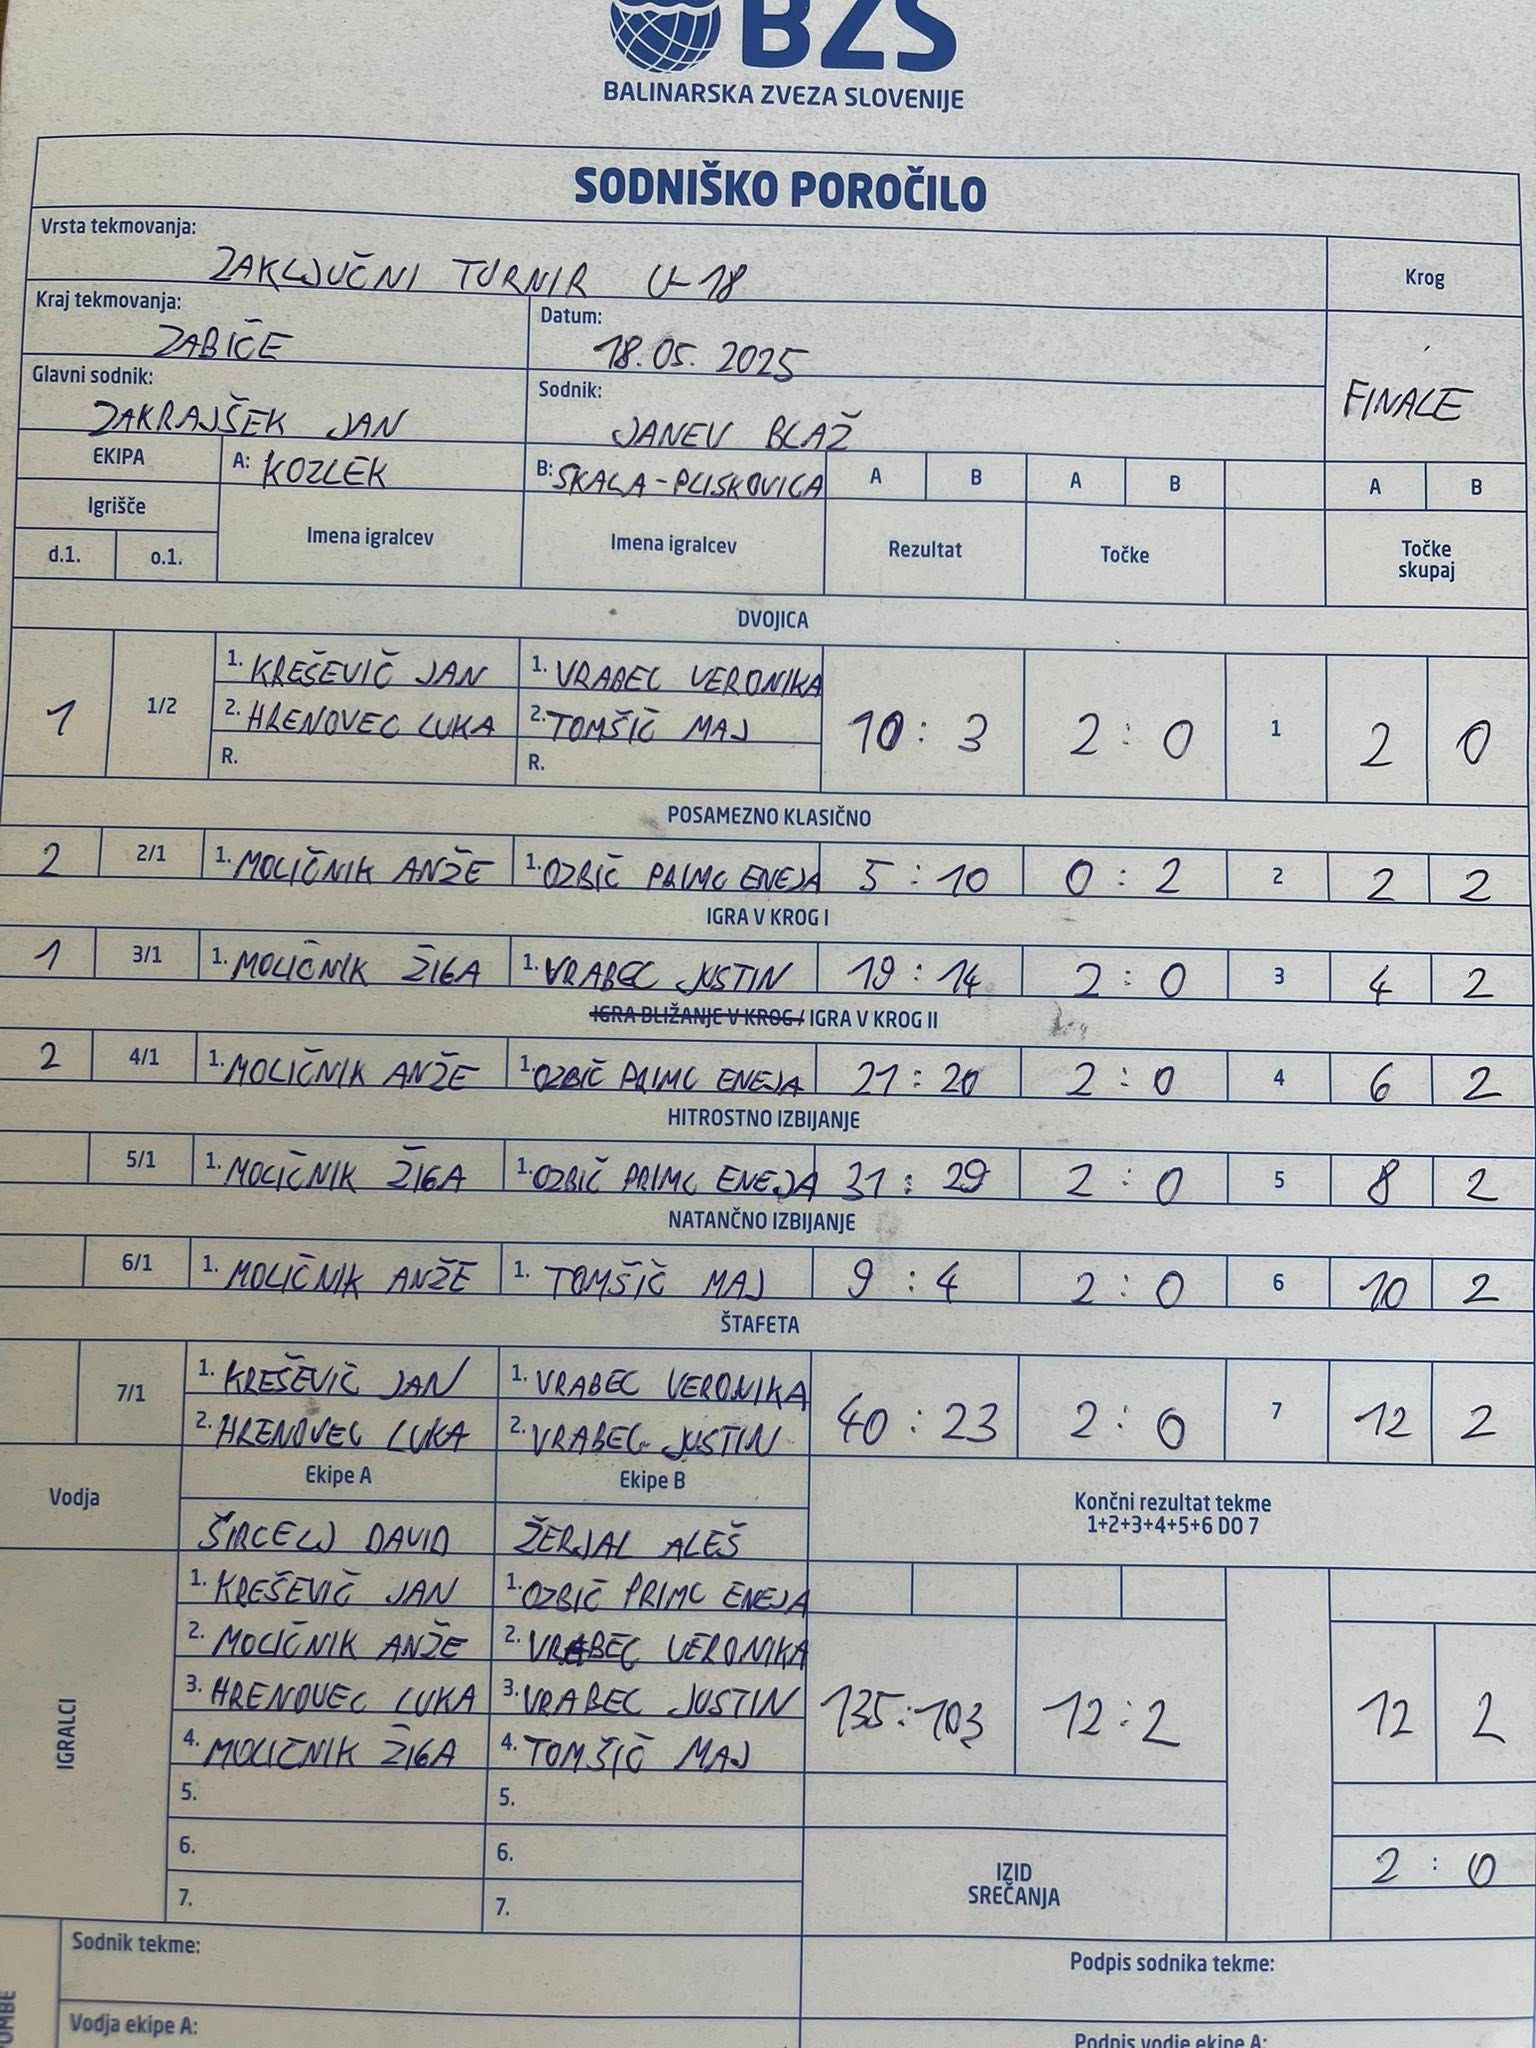 BZS
BALINARSKA ZVEZA SLOVENIJE
SODNIŠKO POROČILO
Vrsta tekmovanja: ZAKLJUČNI TURNIR U-18
Krog
Kraj tekmovanja: ZABIČE Datum: 18.05.2025
FINALE
Glavni sodnik: ZAKRAJŠEK JAN Sodnik: JANEV BLAŽ
EKIPA A: KOZLEK B: SKALA-PLISKOVICA A B A B A B
Igrišče Imena igralcev Imena igralcev Rezultat Točke Točke skupaj
d.1. o.1.
DVOJICA
1. KREŠEVIČ JAN 1. VRABEC VERONIKA
1 1/2 2. HRENOVEC LUKA 2. TOMŠIČ MAJ 10 : 3 2 : 0 1 2 0
R. R.
POSAMEZNO KLASIČNO
2 2/1 1. MOLIČNIK ANŽE 1. OZBIČ PRIMC ENEJA 5 : 10 0 : 2 2 2 2
IGRA V KROG I
1 3/1 1. MOLIČNIK ŽIGA 1. VRABEC JUSTIN 19 : 14 2 : 0 3 4 2
IGRA BLIŽANJE V KROG / IGRA V KROG II
2 4/1 1. MOLIČNIK ANŽE 1. OZBIČ PRIMC ENEJA 21 : 20 2 : 0 4 6 2
HITROSTNO IZBIJANJE
5/1 1. MOLIČNIK ŽIGA 1. OZBIČ PRIMC ENEJA 31 : 29 2 : 0 5 8 2
NATANČNO IZBIJANJE
6/1 1. MOLIČNIK ANŽE 1. TOMŠIČ MAJ 9 : 4 2 : 0 6 10 2
ŠTAFETA
1. KREŠEVIČ JAN 1. VRABEC VERONIKA
7/1 2. HRENOVEC LUKA 2. VRABEC JUSTIN 40 : 23 2 : 0 7 12 2
Vodja Ekipe A Ekipe B Končni rezultat tekme
1+2+3+4+5+6 DO 7
ŠIRCELJ DAVID ŽERJAL ALEŠ
IGRALCI
1. KREŠEVIČ JAN 1. OZBIČ PRIMC ENEJA
2. MOLIČNIK ANŽE 2. VRABEC VERONIKA
3. HRENOVEC LUKA 3. VRABEC JUSTIN 135:103 12:2 12 2
4. MOLIČNIK ŽIGA 4. TOMŠIČ MAJ
5. 5.
6. 6. IZID SREČANJA 2 : 0
7. 7.
Sodnik tekme: Podpis sodnika tekme:
Vodja ekipe A: Podpis vodje ekipe A: